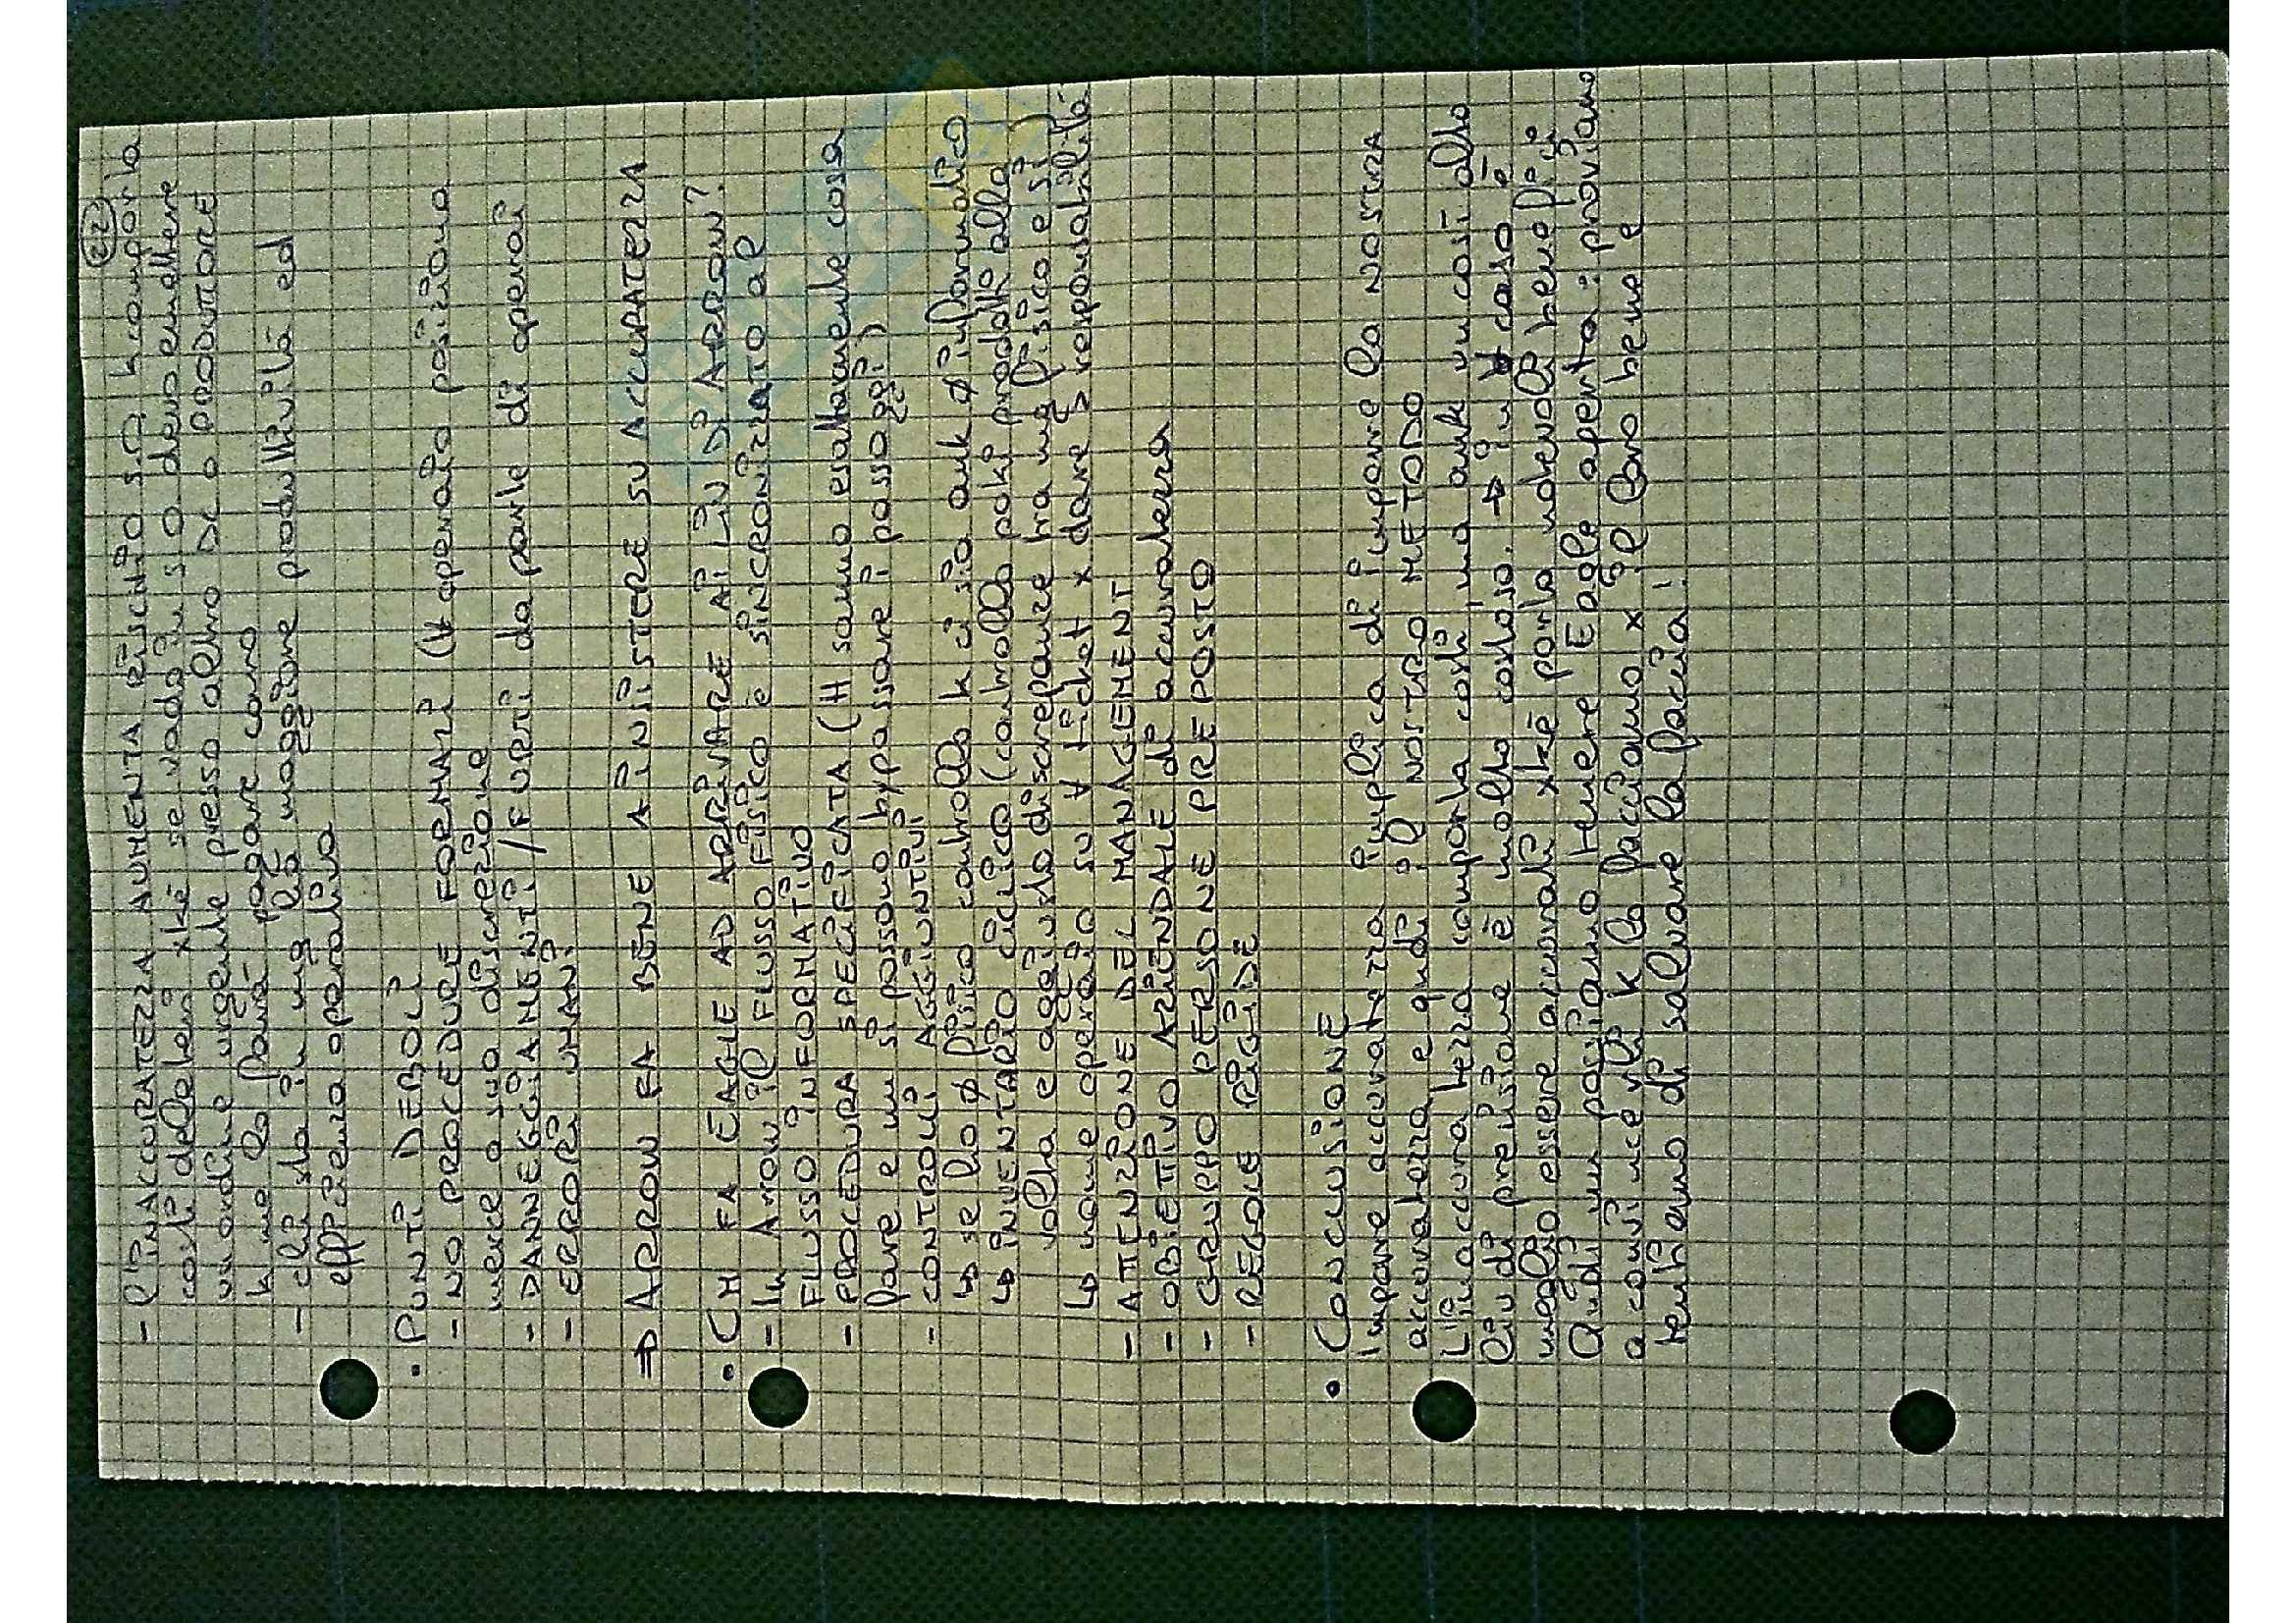 22
- L'INACCURATEZZA AUMENTA RISCHIO S.O. k comporta
costi deleteri xkè se vado in S.O devo emettere
un ordine urgente presso altro DC o PRODUTTORE
k me lo farà pagare caro
- chi sta in mg ha maggiore produttività ed
efficienza operativa
• PUNTI DEBOLI
- NO PROCEDURE FORMALI (∀ operaio posiziona
merce a sua discrezione
- DANNEGGIAMENTI / FURTI da parte di operai
- ERRORI UMANI
⇒ ARROW FA BENE A INSISTERE SU ACCURATEZZA
• CM FA EAGLE AD ARRIVARE AI LIV DI ARROW?
- In Arrow il FLUSSO FISICO è SINCRONIZZATO al
FLUSSO INFORMATIVO
- PROCEDURA SPECIFICATA (H sanno esattamente cosa
fare e nn si possono bypassare i passaggi)
- CONTROLLI AGGIUNTIVI
↳ se ho ∅ fisico controllo k ci sia ank ∅ informatico
↳ INVENTARIO CICLICO (controllo poki prodotti alla
volta e aggiusto discrepanze tra mg fisico e si)
↳ nome operaio su ∀ ticket x dare > responsabilità
- ATTENZIONE DEL MANAGEMENT
- OBIETTIVO AZIENDALE di accuratezza
- GRUPPO PERSONE PREPOSTO
- REGOLE RIGIDE
• CONCLUSIONE
Imporre accuratezza implica di imporre la NOSTRA
accuratezza e qndi il NOSTRO METODO
L'inaccuratezza comporta costi, ma ank un così alto
liv di precisione è molto costoso. → in ∀ caso è
meglio essere accurati xkè porta notevoli benefici
Qindi nn possiamo tenere Eagle aperta: proviamo
a convincerli k lo facciamo x il loro bene e
tentiamo di salvare la faccia!